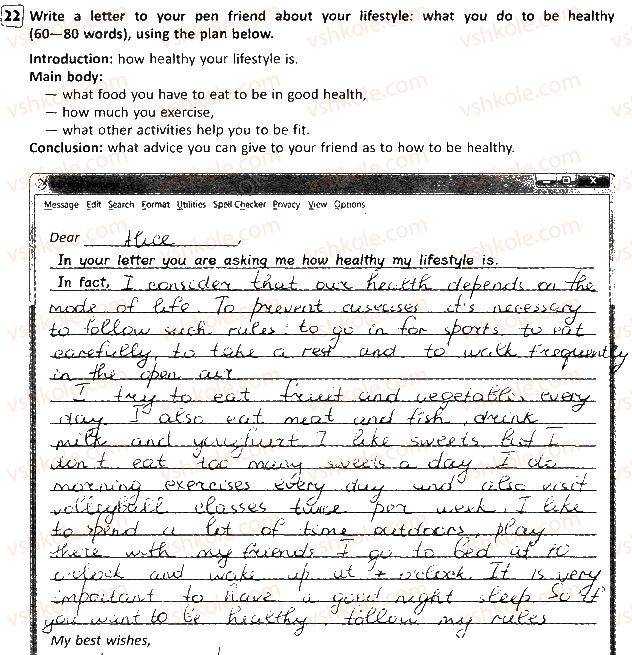 22 Write a letter to your pen friend about your lifestyle: what you do to be healthy
(60—80 words), using the plan below.
Introduction: how healthy your lifestyle is.
Main body:
— what food you have to eat to be in good health,
— how much you exercise,
— what other activities help you to be fit.
Conclusion: what advice you can give to your friend as to how to be healthy.
Message Edit Search Format Utilities Spell Checker Privacy View Options
Dear Alice,
In your letter you are asking me how healthy my lifestyle is.
In fact, I consider that our health depends on the
mode of life. To prevent it's necessary
to follow such rules: to go in for sports, to eat
carefully, to take a rest and to walk frequently
in the open air.
I try to eat fruit and vegetables every
day. I also eat meat and fish, drink
milk and youghurt. I like sweets but I
don't eat too many sweets a day. I do
morning exercises every day and also visit
volleyball classes twice per week. I like
to spend a lot of time outdoors, play
there with my friends. I go to bed at 10
o'clock and wake up at 7 o'clock. It is very
important to have a good night sleep. So if
you want to be healthy follow my rules
My best wishes,
vshkole.com